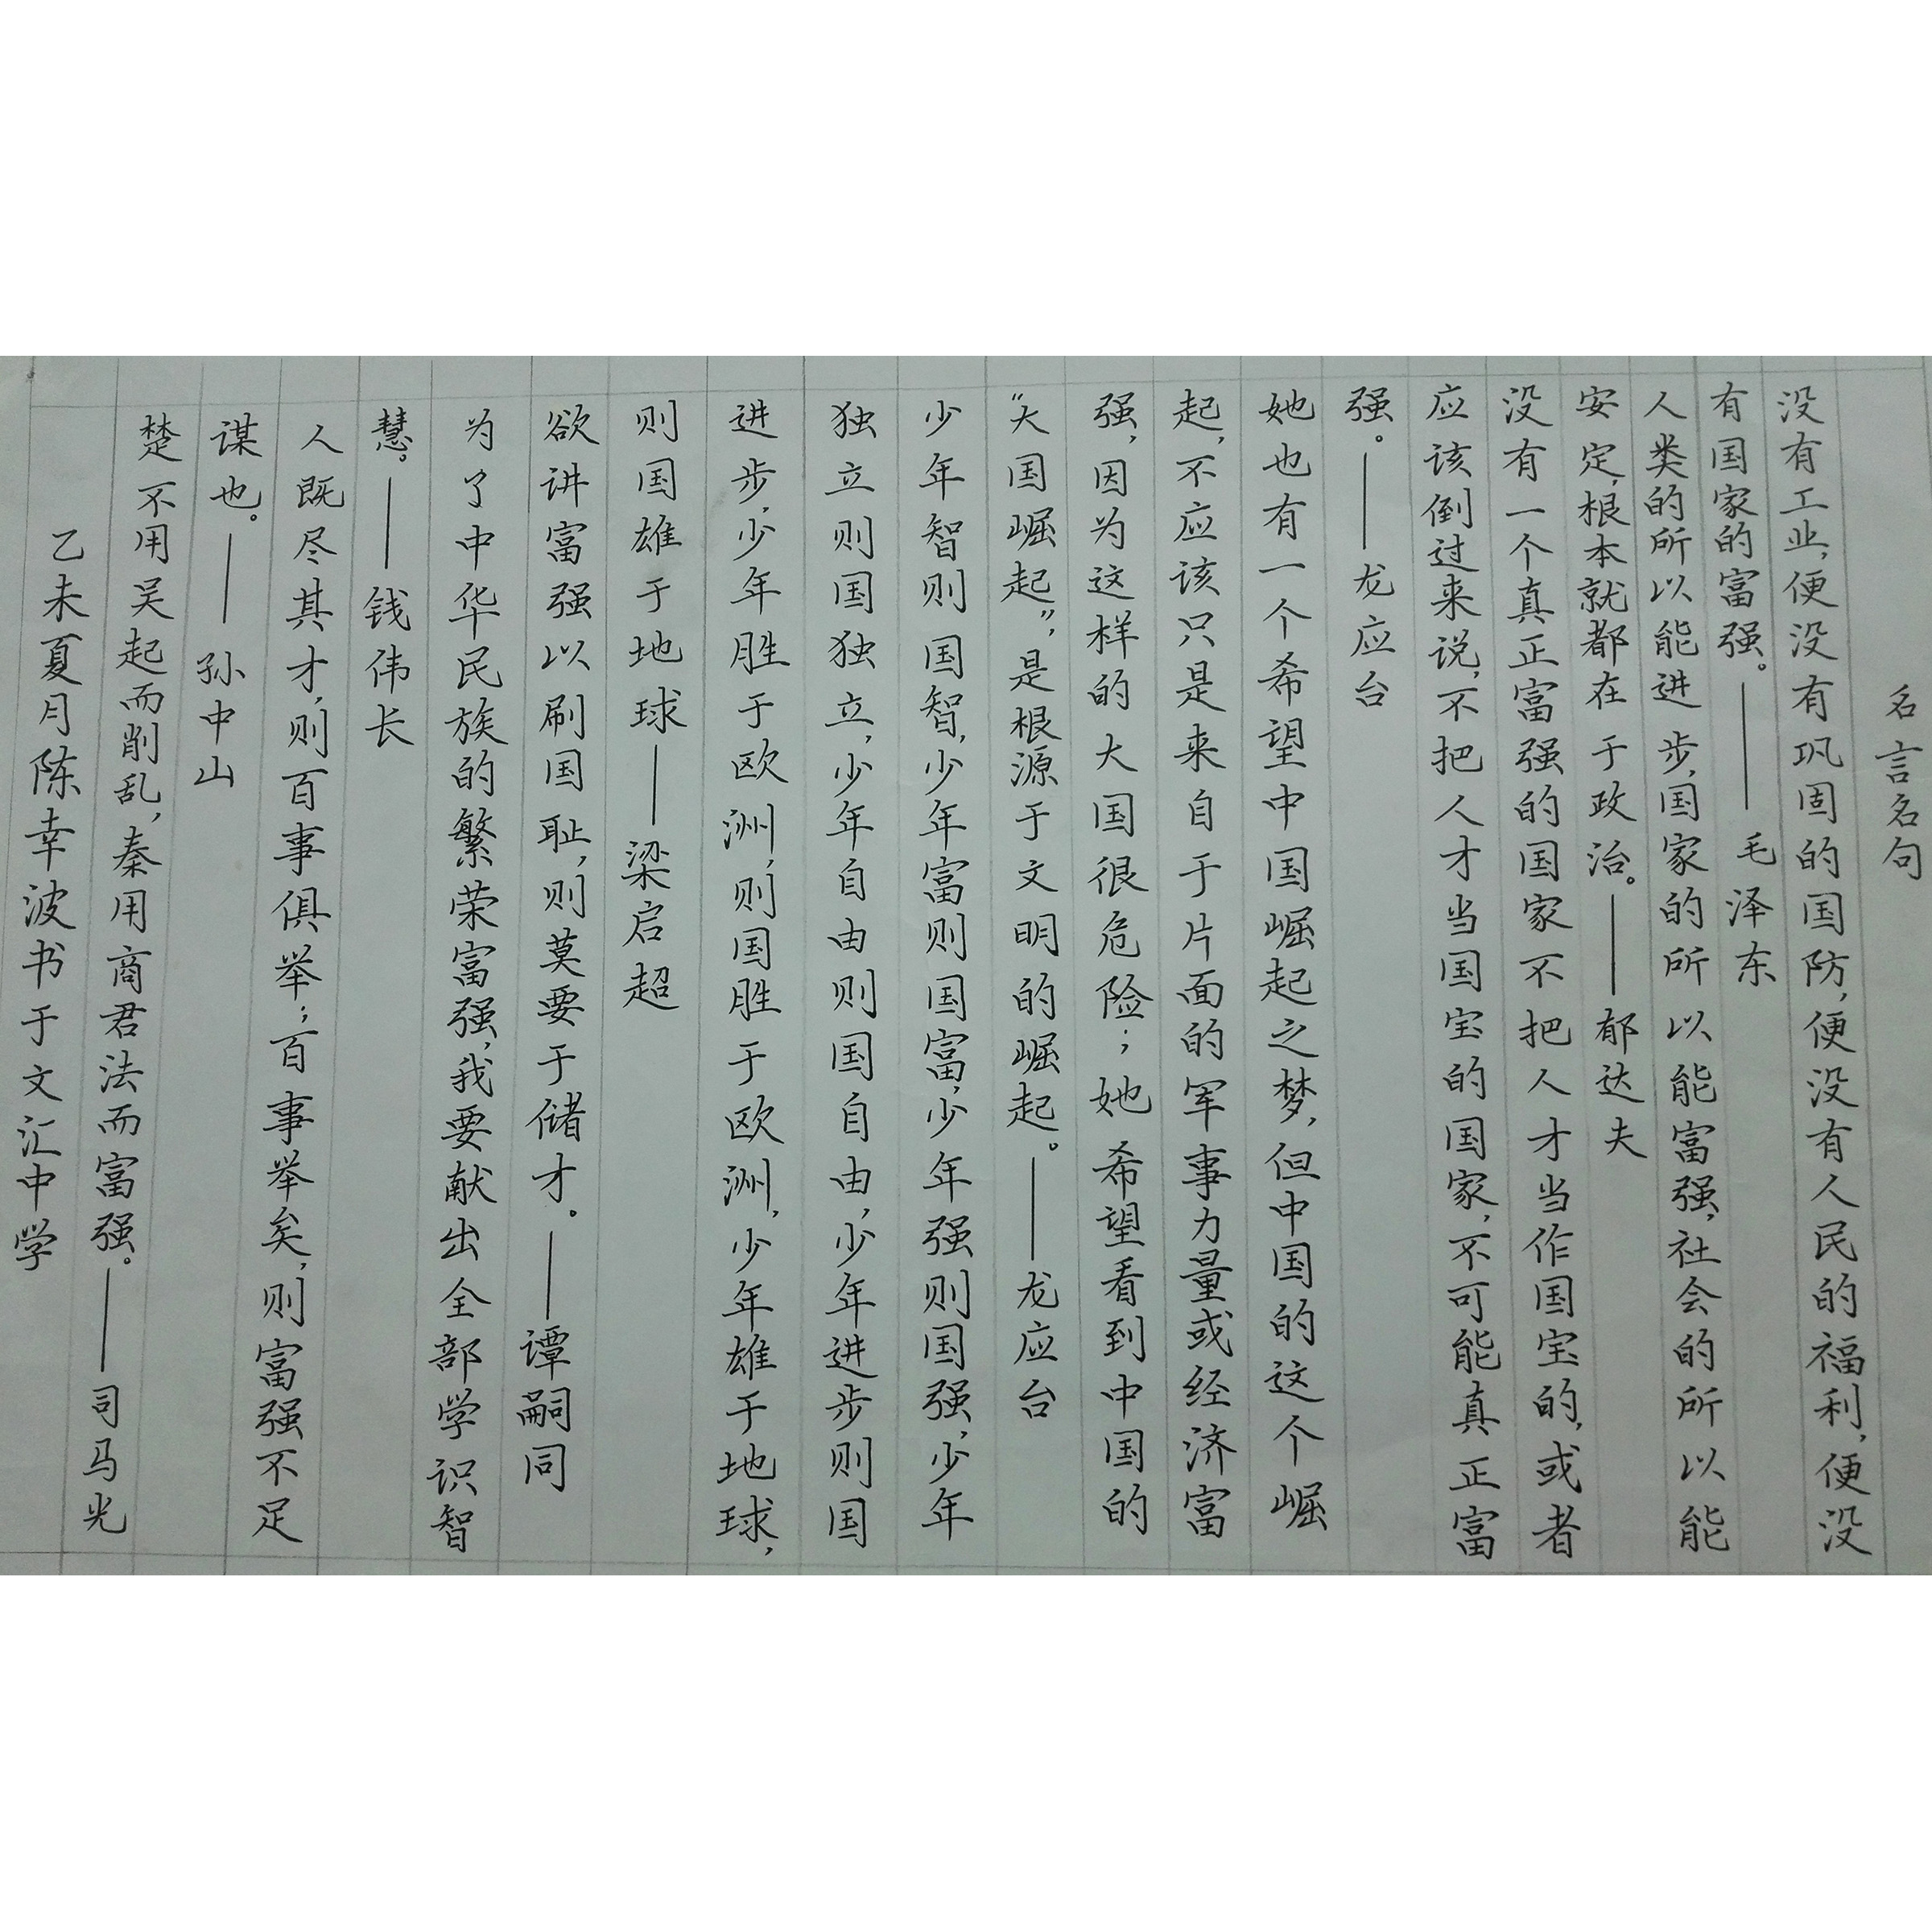 名言名句
没有工业,便没有巩固的国防,便没有人民的福利,便没
有国家的富强。——毛泽东
人类的所以能进步,国家的所以能富强,社会的所以能
安定,根本就都在于政治。——郁达夫
没有一个真正富强的国家不把人才当作国宝的,或者
应该倒过来说,不把人才当国宝的国家,不可能真正富
强。——龙应台
她也有一个希望中国崛起之梦,但中国的这个崛
起,不应该只是来自于片面的军事力量或经济富
强,因为这样的大国很危险;她希望看到中国的
“大国崛起”,是根源于文明的崛起。——龙应台
少年智则国智,少年富则国富,少年强则国强,少年
独立则国独立,少年自由则国自由,少年进步则国
进步,少年胜于欧洲,则国胜于欧洲,少年雄于地球,
则国雄于地球——梁启超
欲讲富强以刷国耻,则莫要于储才。——谭嗣同
为了中华民族的繁荣富强,我要献出全部学识智
慧。——钱伟长
人既尽其才,则百事俱举;百事举矣,则富强不足
谋也。——孙中山
楚不用吴起而削乱,秦用商君法而富强。——司马光
乙未夏月陈幸波书于文汇中学